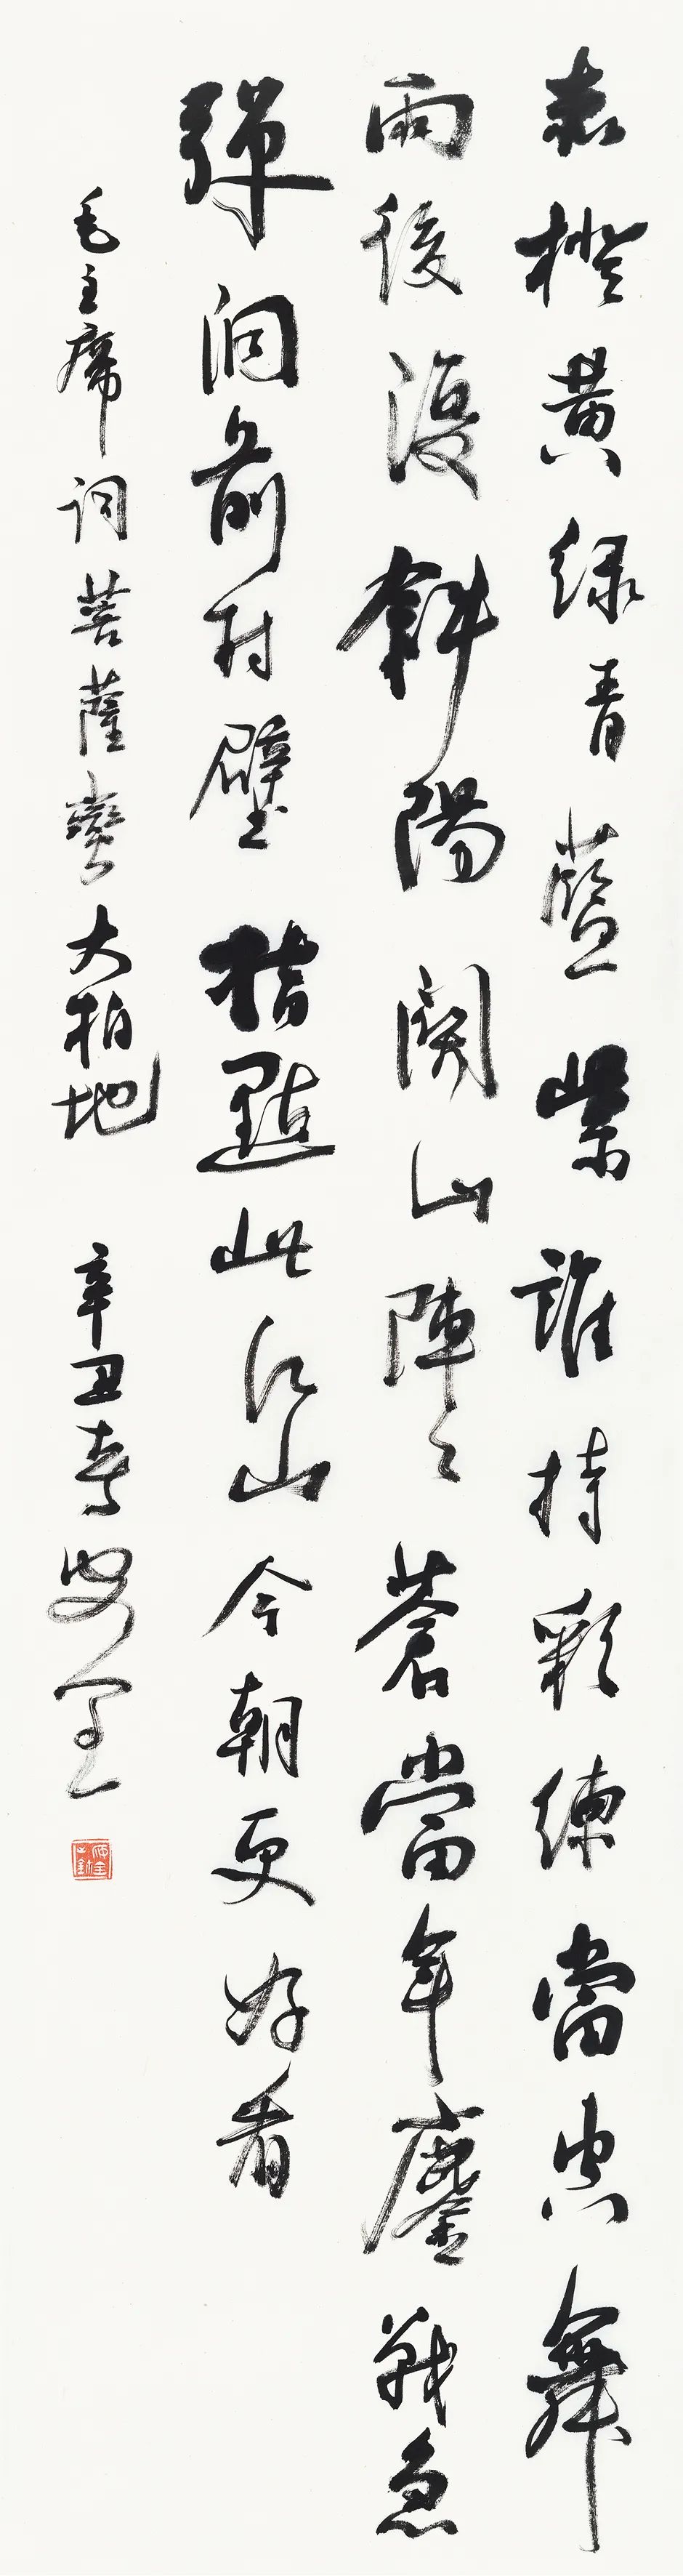 赤橙黃綠青藍紫誰持彩練當空舞
雨後復斜陽關山陣〻蒼當年鏖戰急
彈洞前村壁指點此江山今朝更好看
毛主席詞菩薩蠻大柏地 辛丑春